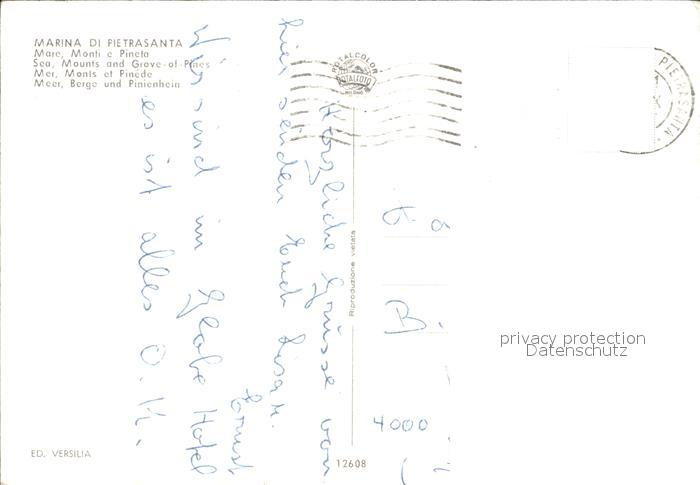 MARINA DI PIETRASANTA
Mare, Monti e Pineta
Sea, Mounts and Grove-of-Pines
Mer, Monts et Pinède
Meer, Berge und Pinienhein
ROTALCOLOR
ROTALFOTO
MILANO
PIETRASANTA
Herzliche Grüsse von
hier senden Euch Lisa u.
Ernst
Wir sind im Globe Hotel
es ist alles O.K.
Riproduzione vietata
4000
privacy protection
Datenschutz
ED. VERSILIA
12608